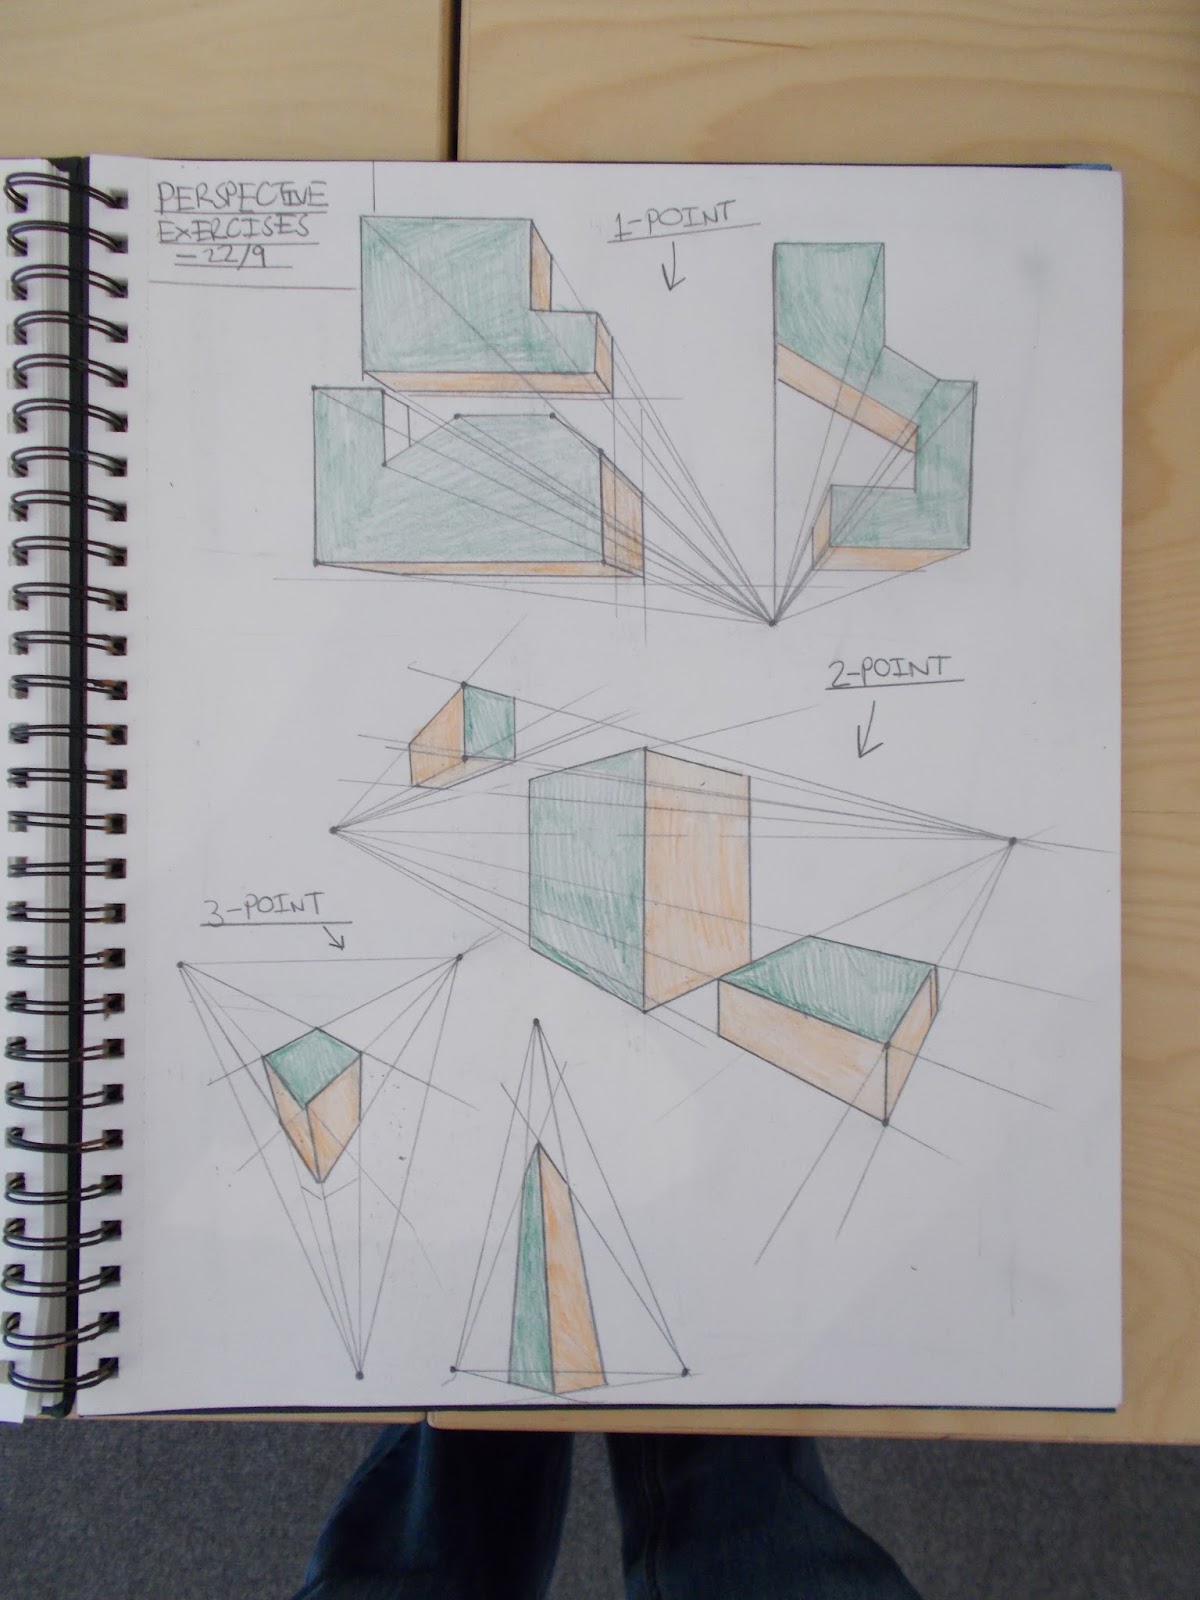 PERSPECTIVE
EXERCISES
- 22/9
1-POINT
2-POINT
3-POINT